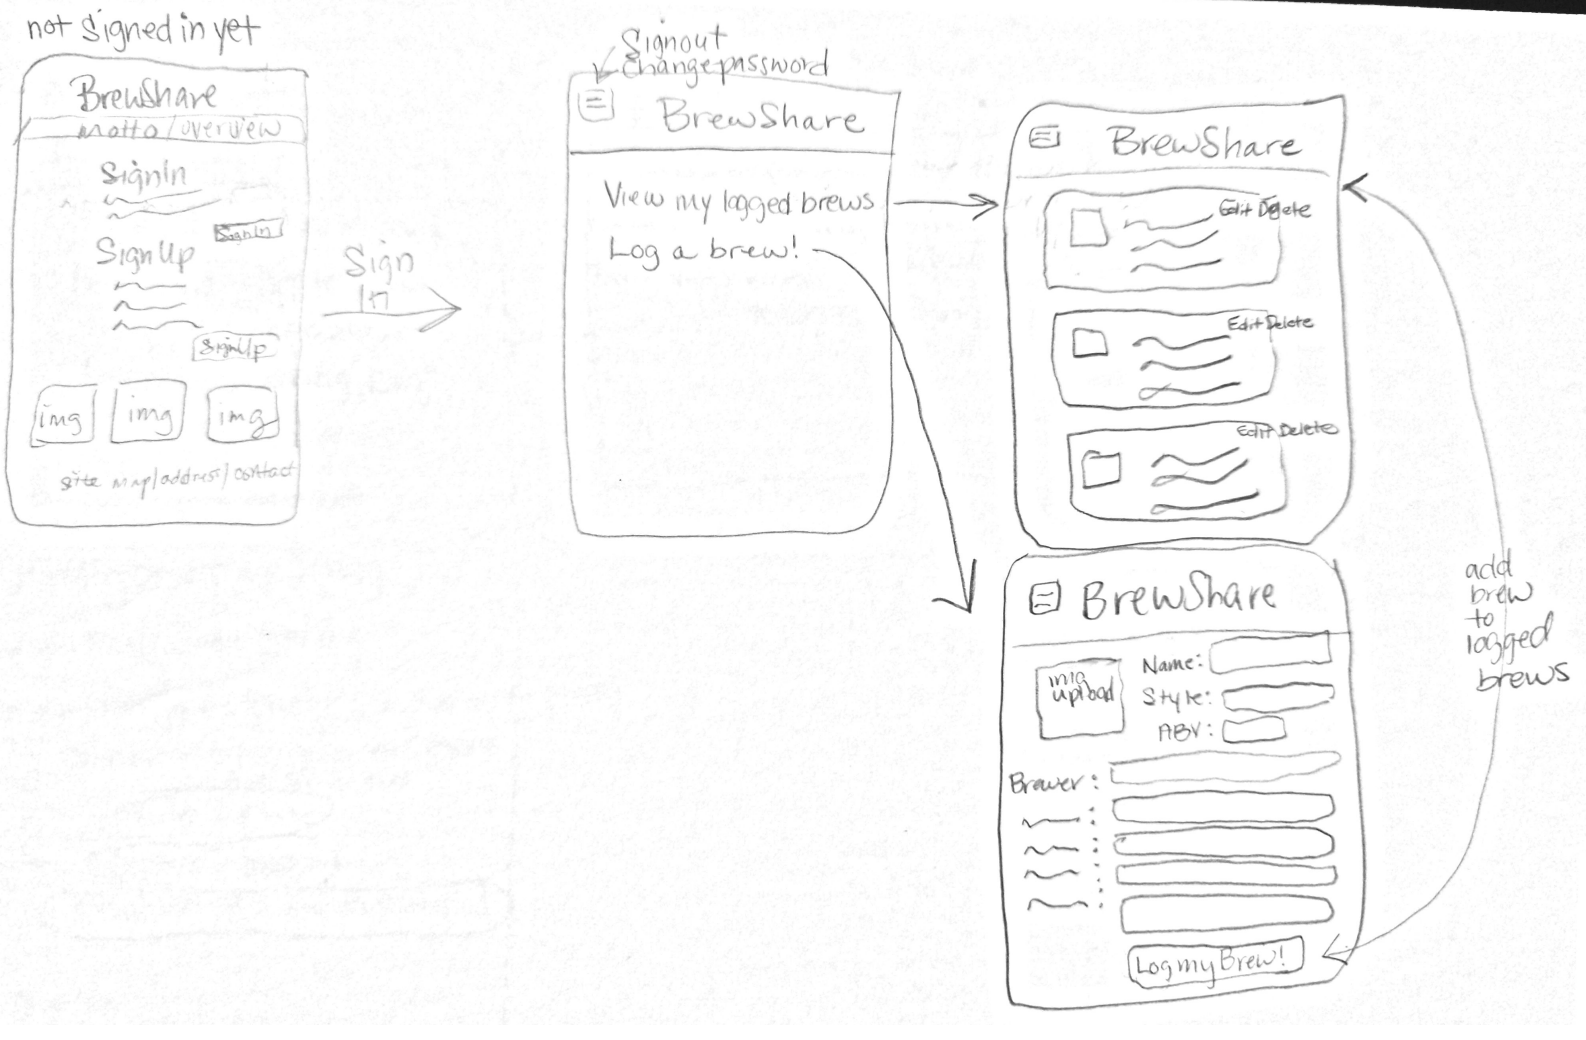 not Signed in yet
BrewShare
motto/overview
SignIn
SignIn
SignUp
SignUp
img
img
img
site map/address/contact
Sign
In
Signout
changepassword
BrewShare
View my logged brews
Log a brew!
BrewShare
Edit Delete
Edit Delete
Edit Delete
BrewShare
img
upload
Name:
Style:
ABV:
Brewer:
Log my Brew!
add
brew
to
logged
brews